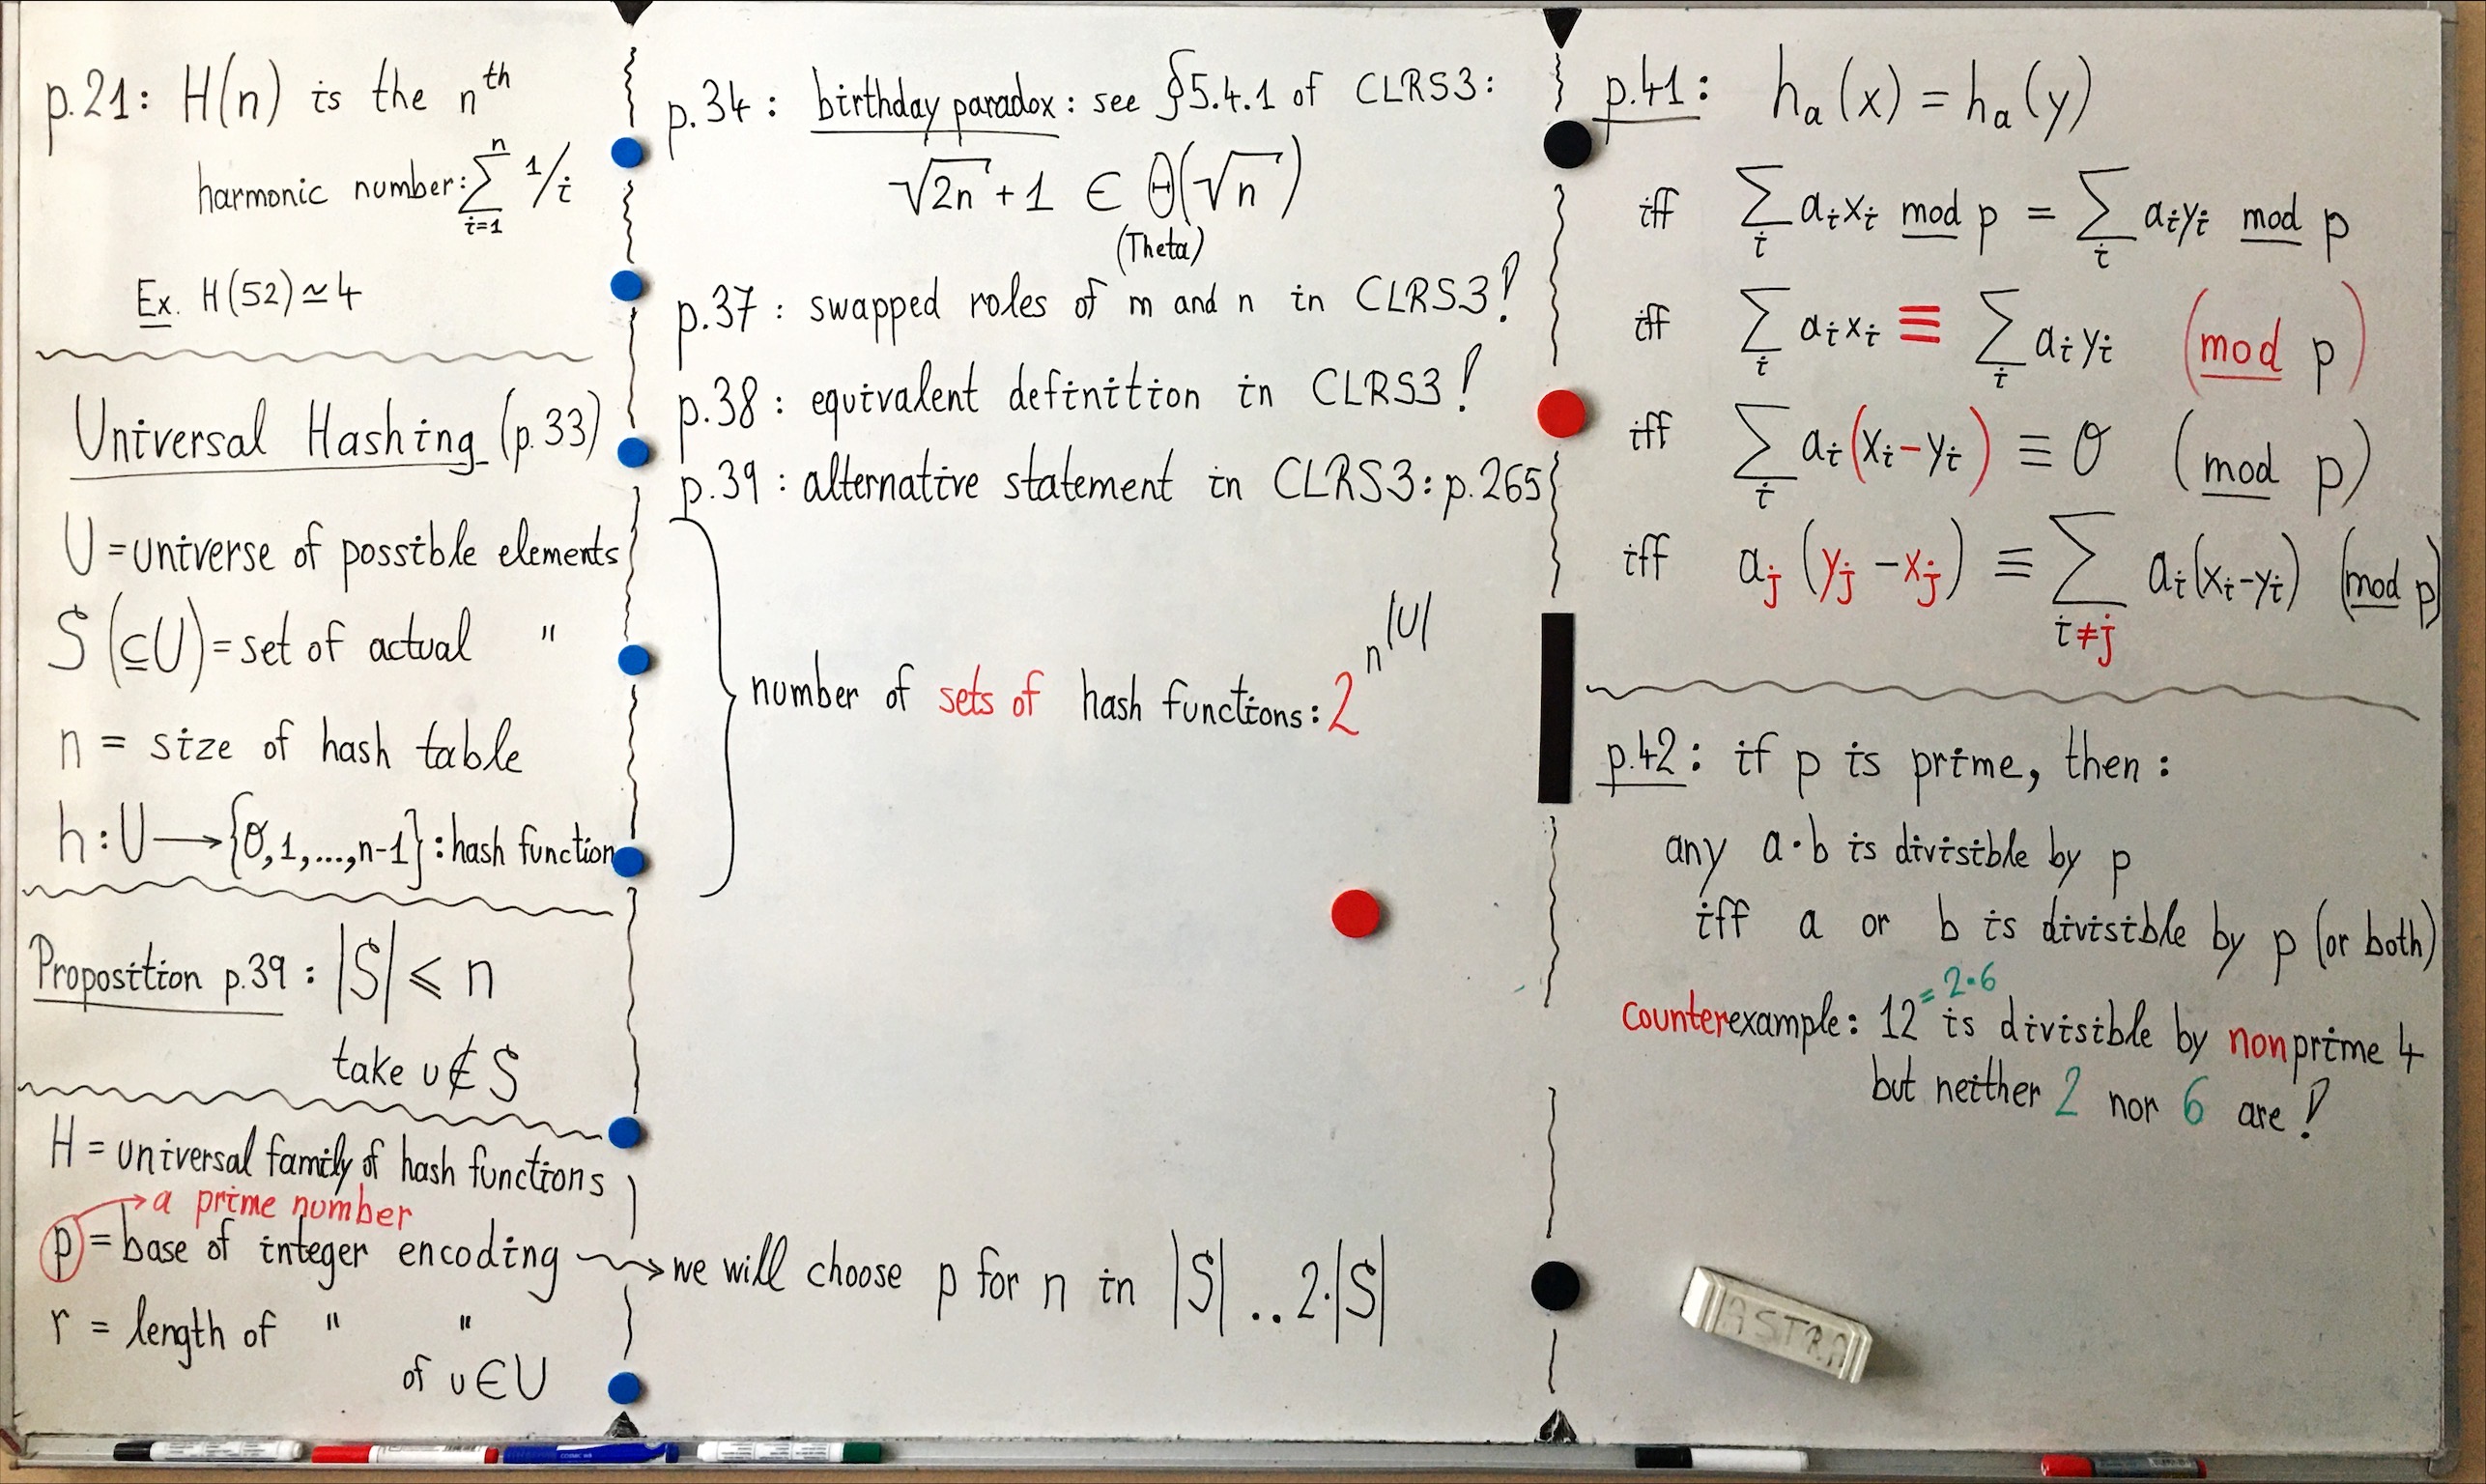 p.21: H(n) is the nᵗʰ
harmonic number: ∑ⁿᵢ₌₁ 1/i
Ex. H(52) ≃ 4
Universal Hashing (p.33)
U = universe of possible elements
S (⊆U) = set of actual "
n = size of hash table
h : U ⟶ {0,1,...,n-1} : hash function
Proposition p.39 : |S| ⩽ n
take u ∉ S
H = universal family of hash functions
→ a prime number
p = base of integer encoding ⇝ we will choose p for n in |S| .. 2·|S|
r = length of " "
of u ∈ U
p.34 : birthday paradox : see §5.4.1 of CLRS3 :
√2n + 1 ∈ Θ(√n)
(Theta)
p.37 : swapped roles of m and n in CLRS3 !
p.38 : equivalent definition in CLRS3 !
p.39 : alternative statement in CLRS3 : p.265
} number of sets of hash functions : 2^n^|U|
p.41 : hₐ(x) = hₐ(y)
iff ∑ᵢ aᵢxᵢ mod p = ∑ᵢ aᵢyᵢ mod p
iff ∑ᵢ aᵢxᵢ ≡ ∑ᵢ aᵢyᵢ (mod p)
iff ∑ᵢ aᵢ(xᵢ-yᵢ) ≡ 0 (mod p)
iff aⱼ (yⱼ - xⱼ) ≡ ∑ i≠j aᵢ(xᵢ-yᵢ) (mod p)
p.42 : if p is prime, then :
any a·b is divisible by p
iff a or b is divisible by p (or both)
counterexample: 12 = 2·6 is divisible by nonprime 4
but neither 2 nor 6 are !
ASTRA